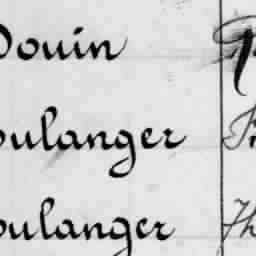 Douin
oulanger
oulanger Th